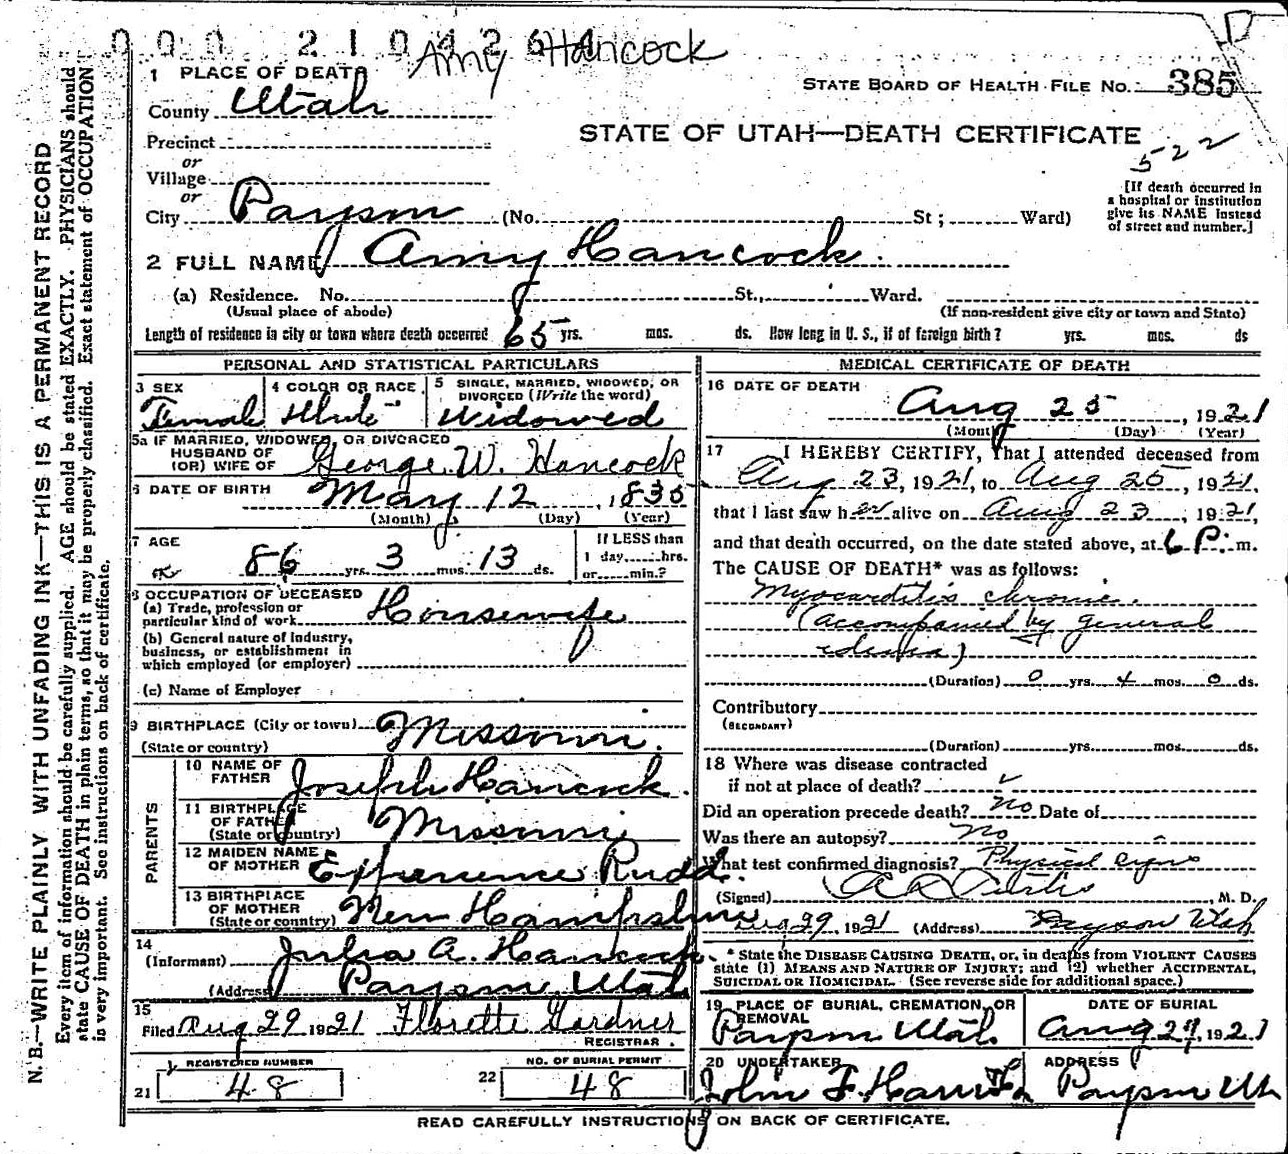 000 210426
Amy Hancock
D
1 PLACE OF DEATH
STATE BOARD OF HEALTH FILE No. 385
County Utah
STATE OF UTAH—DEATH CERTIFICATE
522
Precinct
or
Village
or
City Payson (No. St; Ward)
[If death occurred in
a hospital or institution
give its NAME instead
of street and number.]
2 FULL NAME Amy Hancock.
(a) Residence. No. St., Ward.
(Usual place of abode) (If non-resident give city or town and State)
Length of residence in city or town where death occurred 65 yrs. mos. ds. How long in U. S., if of foreign birth? yrs. mos. ds
PERSONAL AND STATISTICAL PARTICULARS
3 SEX 4 COLOR OR RACE 5 SINGLE, MARRIED, WIDOWED, OR
DIVORCED (Write the word)
Female White Widowed
5a IF MARRIED, WIDOWED, OR DIVORCED
HUSBAND OF
(OR) WIFE OF George W. Hancock
6 DATE OF BIRTH May 12, 1835
(Month) (Day) (Year)
7 AGE If LESS than
86 yrs. 3 mos. 13 ds. 1 day......hrs.
or......min.?
8 OCCUPATION OF DECEASED
(a) Trade, profession or
particular kind of work Housewife
(b) General nature of industry,
business, or establishment in
which employed (or employer)
(c) Name of Employer
9 BIRTHPLACE (City or town) Missouri.
(State or country)
PARENTS
10 NAME OF
FATHER Joseph Hancock.
11 BIRTHPLACE
OF FATHER
(State or country) Missouri
12 MAIDEN NAME
OF MOTHER Experience Rudd.
13 BIRTHPLACE
OF MOTHER
(State or country) New Hampshire
14
(Informant) Julia A. Hancock.
(Address) Payson Utah
15
Filed Aug 29 1921 Florette Gardner
REGISTRAR.
REGISTERED NUMBER NO. OF BURIAL PERMIT
21 48 22 48
MEDICAL CERTIFICATE OF DEATH
16 DATE OF DEATH
Aug 25, 1921
(Month) (Day) (Year)
17 I HEREBY CERTIFY, That I attended deceased from
Aug 23, 1921, to Aug 25, 1921,
that I last saw her alive on Aug 23, 1921,
and that death occurred, on the date stated above, at 6 P. m.
The CAUSE OF DEATH* was as follows:
Myocarditis chronic.
(accompanied by general
edema)
(Duration) 0 yrs. 4 mos. 0 ds.
Contributory
(SECONDARY)
(Duration) yrs. mos. ds.
18 Where was disease contracted
if not at place of death?
Did an operation precede death? no Date of
Was there an autopsy? no
What test confirmed diagnosis? Physical signs
(Signed) Curtis, M. D.
Aug 29, 1921 (Address) Payson Utah
* State the DISEASE CAUSING DEATH, or, in deaths from VIOLENT CAUSES
state (1) MEANS AND NATURE OF INJURY; and (2) whether ACCIDENTAL,
SUICIDAL OR HOMICIDAL. (See reverse side for additional space.)
19 PLACE OF BURIAL, CREMATION, OR
REMOVAL
DATE OF BURIAL
Payson Utah. Aug 27, 1921
20 UNDERTAKER ADDRESS
John F. Payson Ut
READ CAREFULLY INSTRUCTIONS ON BACK OF CERTIFICATE.
N. B.—WRITE PLAINLY WITH UNFADING INK—THIS IS A PERMANENT RECORD
Every item of information should be carefully supplied. AGE should be stated EXACTLY. PHYSICIANS should
state CAUSE OF DEATH in plain terms, so that it may be properly classified. Exact statement of OCCUPATION
is very important. See instructions on back of certificate.